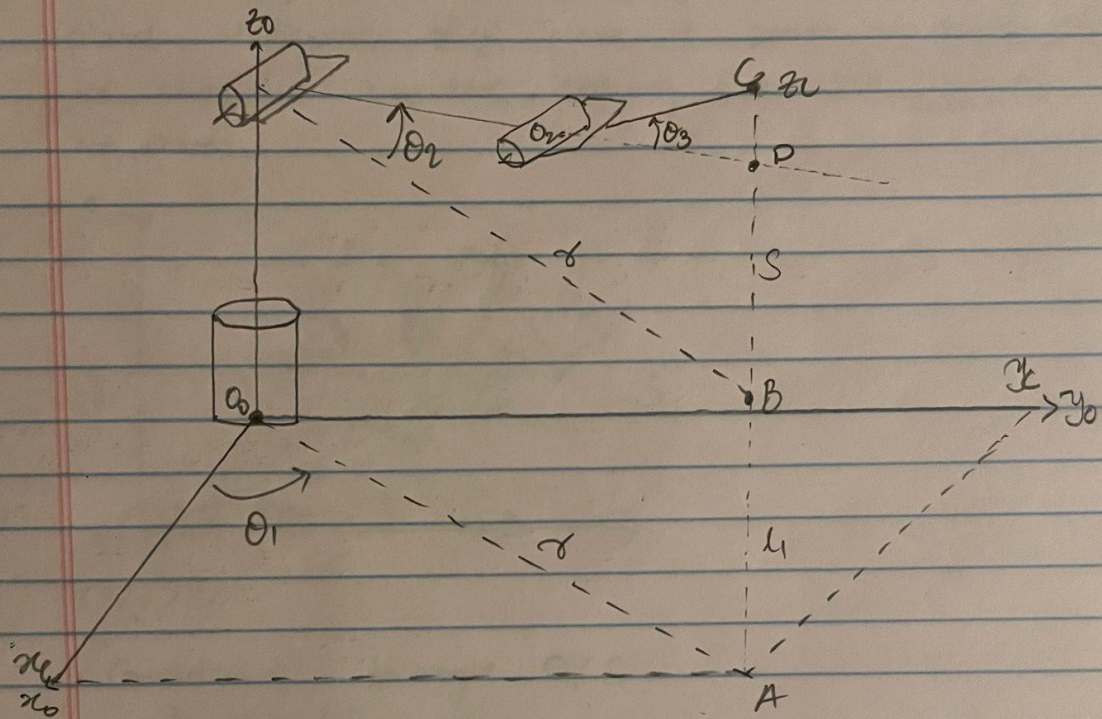 z0
C zc
θ2
O2
θ3
P
r
S
B
yc
O0
y0
θ1
r
L1
xc
x0
A